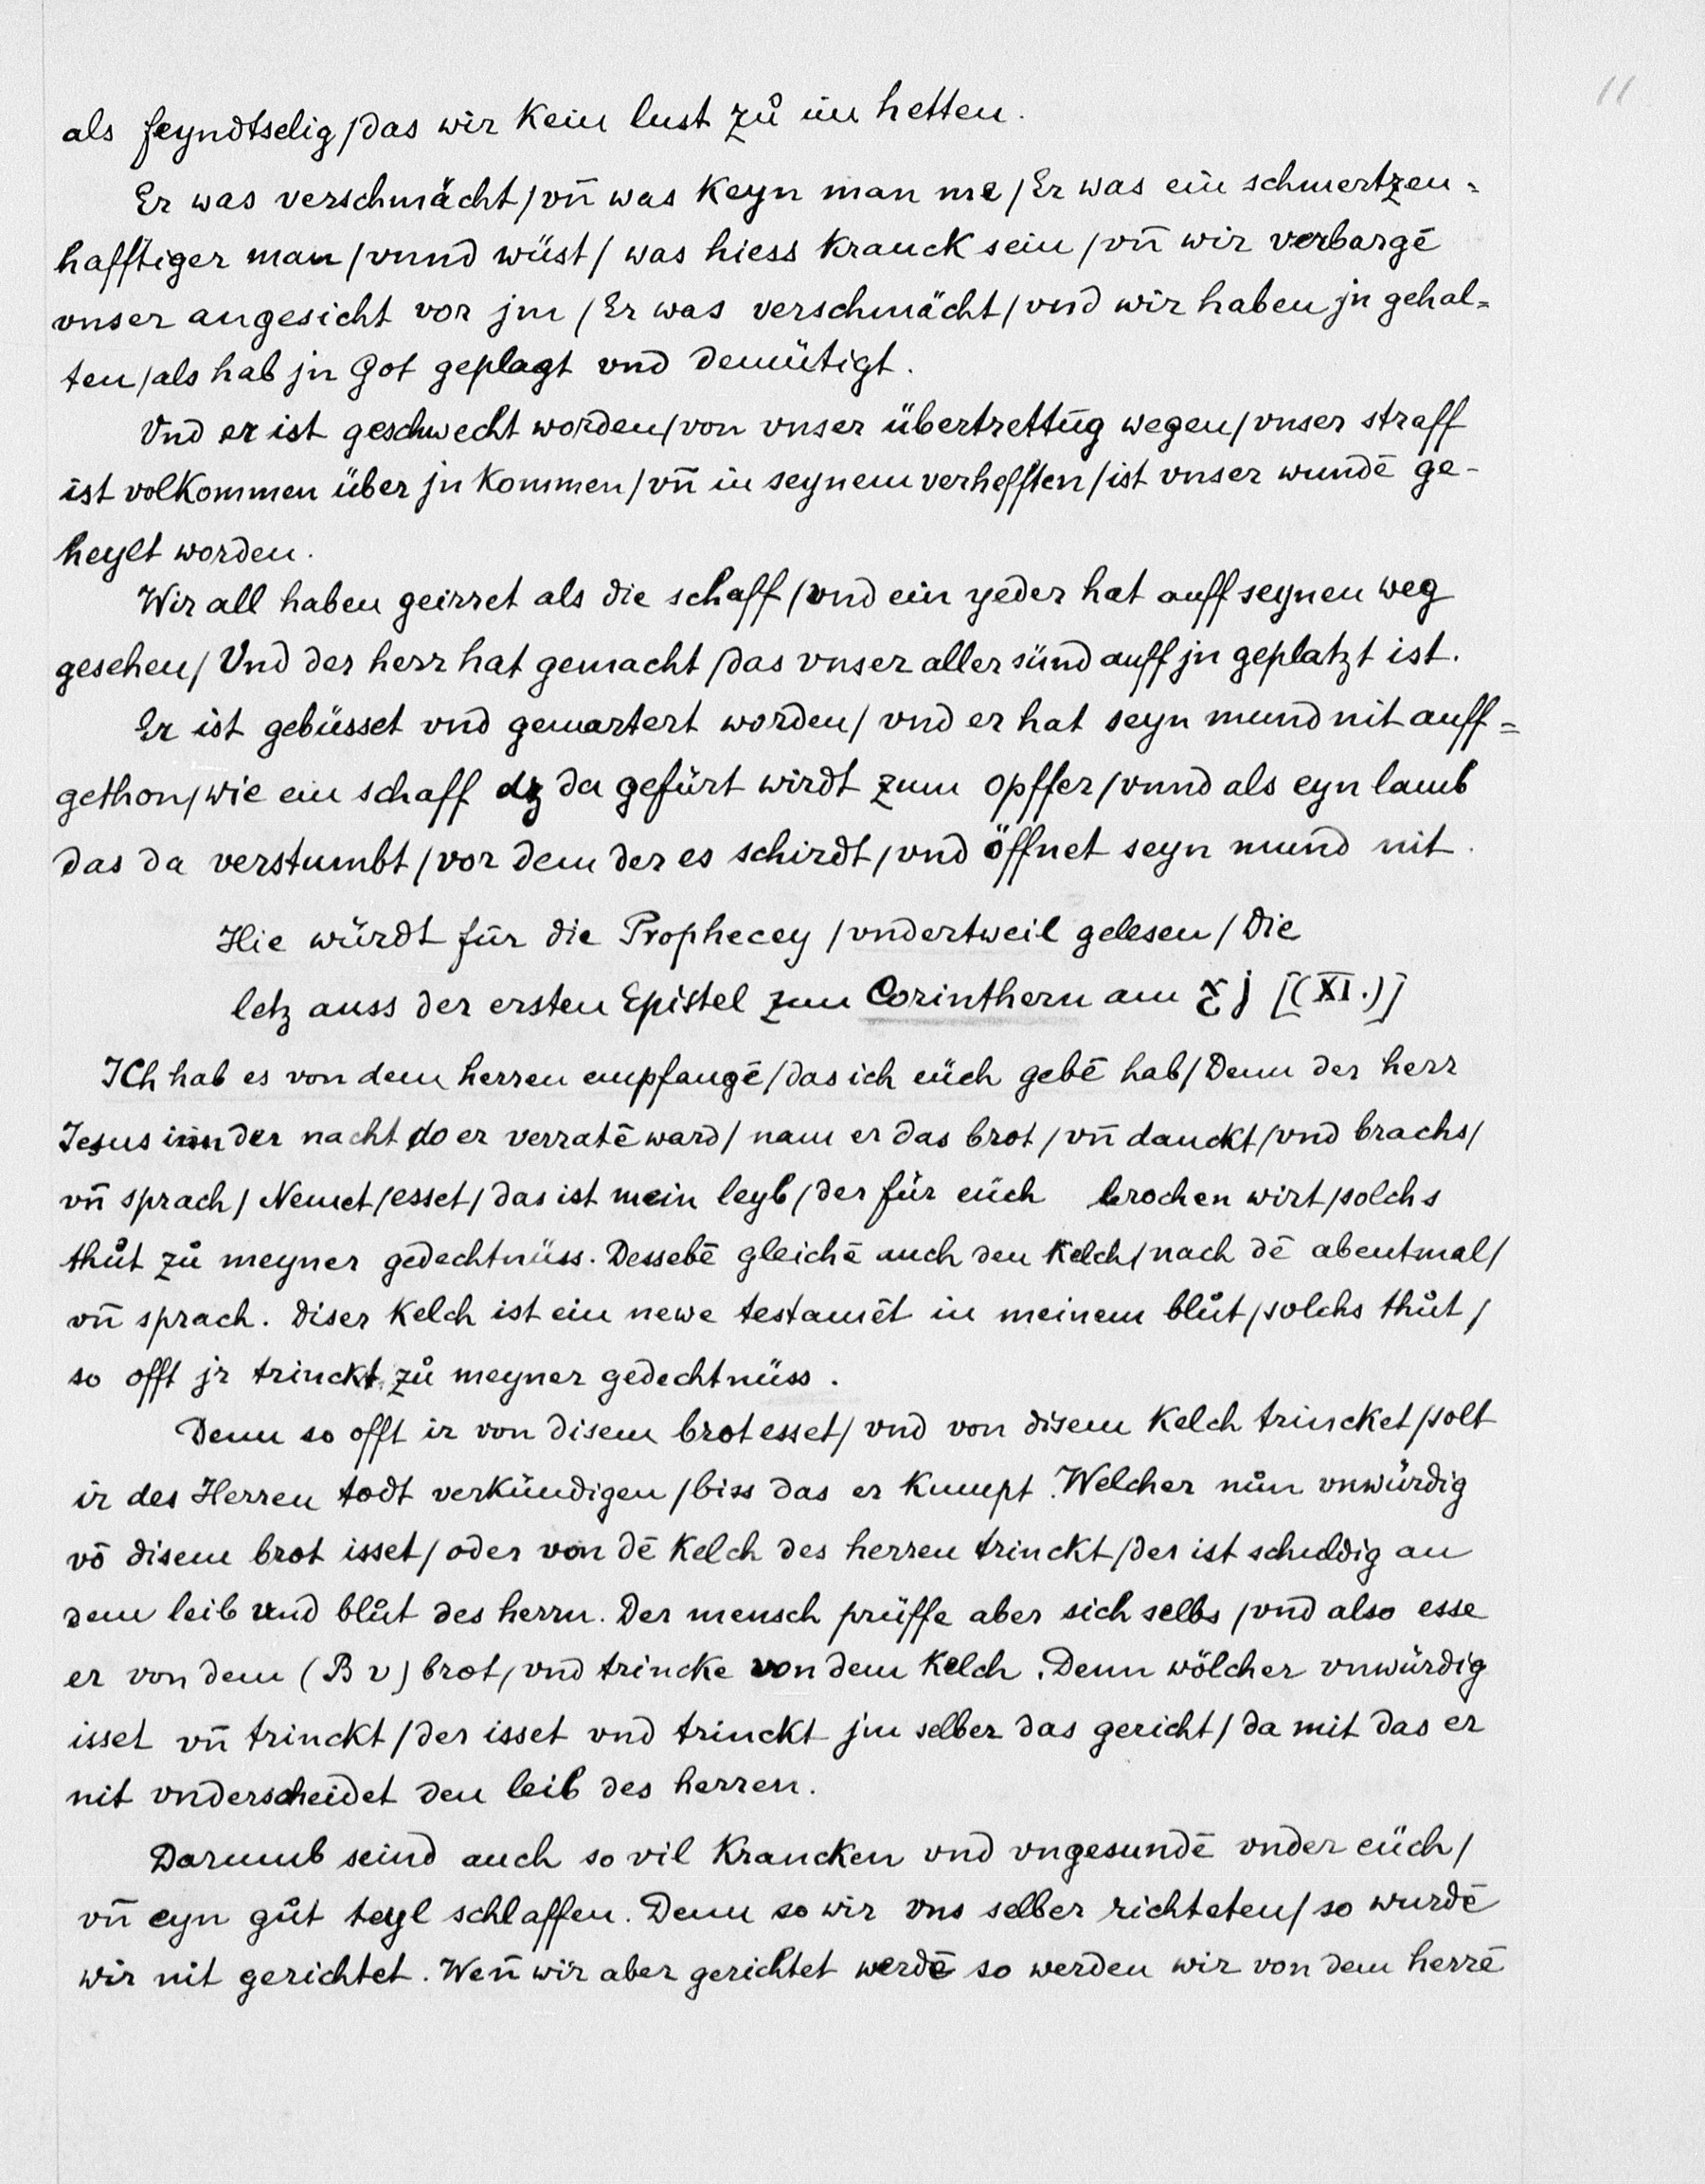 11
als feyndtselig / das wir kein lust zů im hetten.
Er was verschmächt / vñ was keyn man me / Er was ein schmertzen=
hafftiger man / vnnd wüst / was hiess kranck sein / vñ wir verbargē
vnser angesicht vor jm / Er was verschmächt / vnd wir haben jn gehal=
ten / als hab jn Got geplagt vnd demütigt.
Vnd er ist geschwecht worden / von vnser übertrettūg wegen / vnser straff
ist volkommen über jn kommen / vñ in seynem verhefften / ist vnser wundē ge-
heylt worden.
Wir all haben geirret als die schaff / vnd ein yeder hat auff seynen weg
gesehen / Vnd der herr hat gemacht / das vnser aller sünd auff jn geplatzt ist.
Er ist gebüsset vnd gemartert worden / vnd er hat seyn mund nit auff=
gethon / wie ein schaff dz da gefürt wirdt zum opffer / vnnd als eyn lamb
das da verstumbt / vor dem der es schirdt / vnd öffnet seyn mund nit.
Hie würdt für die Prophecey / vndertweil gelesen / Die
letz auss der ersten Epistel zun Corinthern am xj [(XI.)]
ICh hab es von dem herren empfangē / das ich eüch gebē hab / Denn der herr
Jesus inn der nacht do er verratē ward / nam er das brot / vñ danckt / vnd brachs /
vñ sprach / Nemet / esset / das ist mein leyb / der für eüch brochen wirt / solchs
thůt zů meyner gedechtnüss. Dessebē gleichē auch den Kelch / nach dē abentmal /
vñ sprach. Diser Kelch ist ein newe testamēt in meinem blůt / solchs thůt /
so offt jr trinckt zů meyner gedechtnüss.
Denn so offt ir von disem brot esset / vnd von disem Kelch trincket / solt
ir des Herren todt verkündigen / biss das er kumpt. Welcher nůn vnwürdig
vō disem brot isset / oder von dē Kelch des herren trinckt / der ist schuldig an
dem leib vnd blůt des herrn. Der mensch prüffe aber sich selbs / vnd also esse
er von dem (B v) brot / vnd trincke von dem Kelch. Denn wölcher vnwürdig
isset vñ trinckt / der isset vnd trinckt jm selber das gericht / da mit das er
nit vnderscheidet den leib des herren.
Darumb seind auch so vil Krancken vnd vngesundē vnder eüch /
vñ eyn gůt teyl schlaffen. Denn so wir vns selber richteten / so wurdē
wir nit gerichtet. Weñ wir aber gerichtet werdē so werden wir von dem herrē